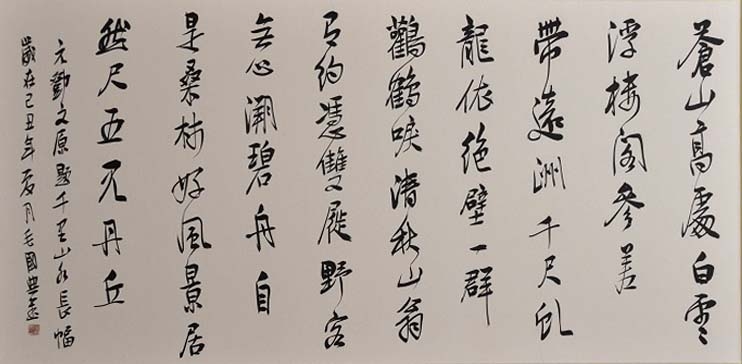 蒼山高處白雲
浮樓閣參差
帶遠洲千尺虬
龍依絕壁一群
鸛鶴唳清秋山翁
有約憑雙屐野客
無心溯碧舟自
是桑好風景居
然尺五見丹丘
元鄧文原題千里山水長幅
歲在己丑年夏月毛國典書